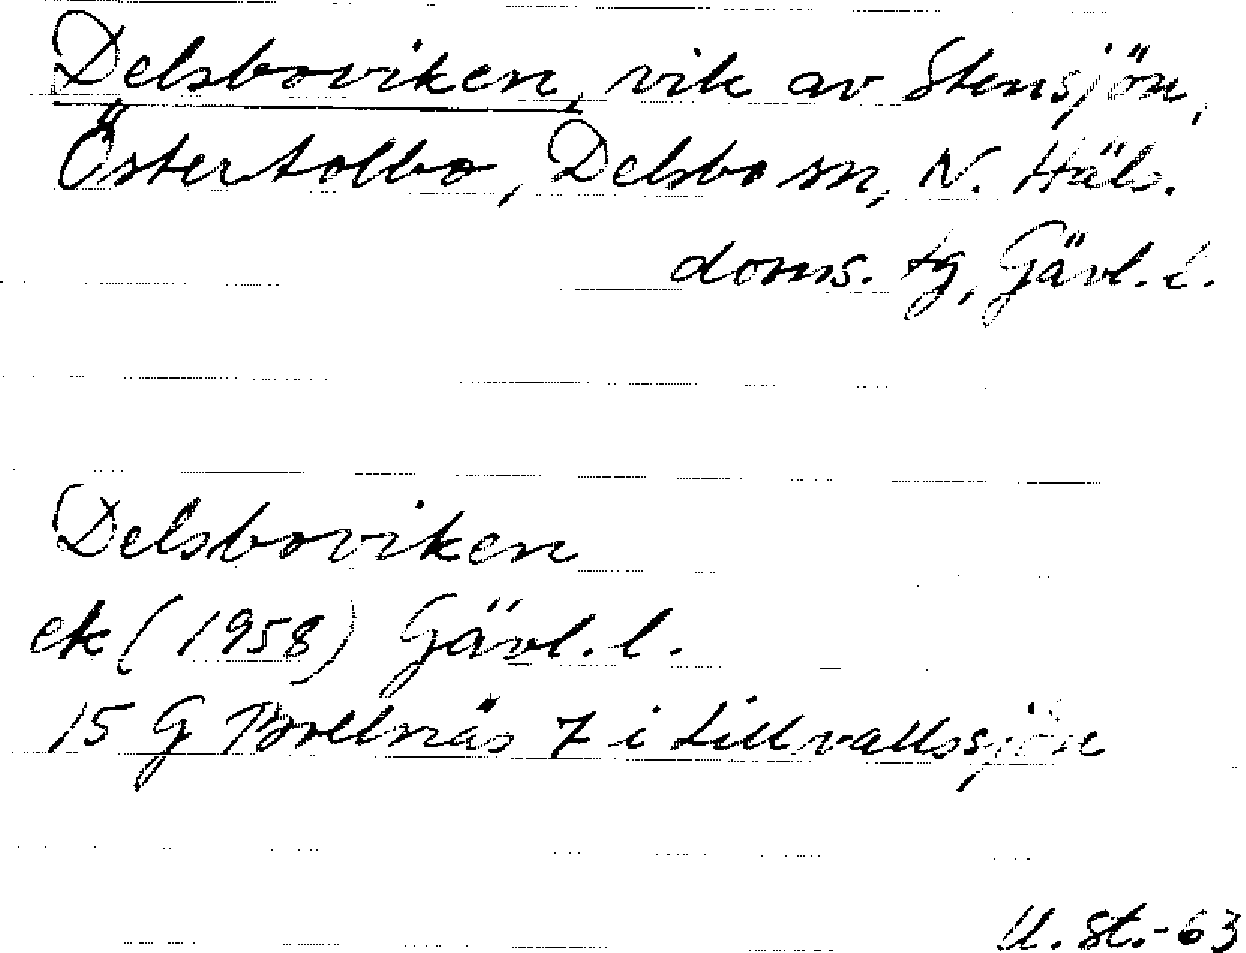 Delsboviken, vik av Stensjön,
Östertolbo, Delsbo sn, N. Häls.
doms. tg, Gävl. l.
Delsboviken
ek (1958) Gävl. l.
15 G Bollnäs 7 i Lillvallssjön
U. St.-63